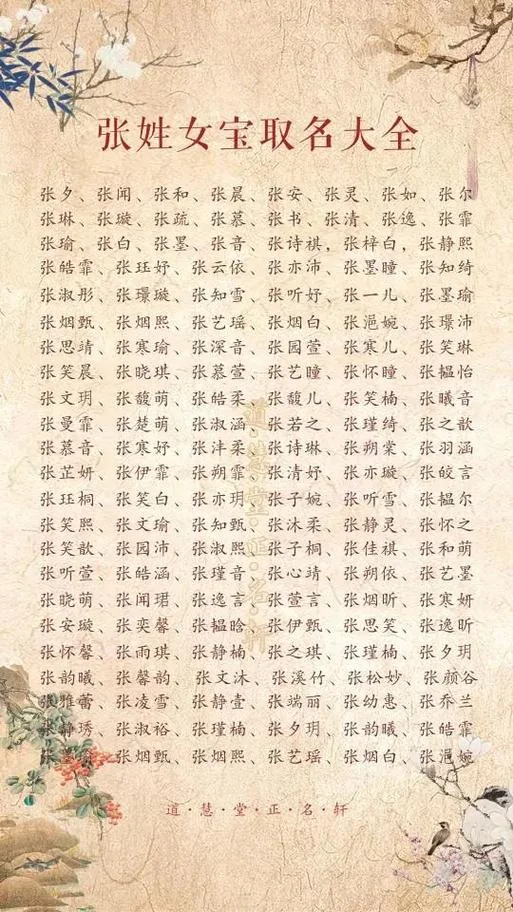 张姓女宝取名大全
张夕、张闻、张和、张晨、张安、张灵、张如、张尔
张琳、张璇、张疏、张慕、张书、张清、张逸、张霏
张瑜、张白、张墨、张音、张诗祺，张梓白，张静熙
张皓霏、张珏妤、张云依、张亦沛、张墨瞳、张知绮
张淑彤、张璟璇、张知雪、张听妤、张一儿、张墨瑜
张烟甄、张烟熙、张艺瑶、张烟白、张浥婉、张璟沛
张思靖、张寒瑜、张深音、张园萱、张寒儿、张笑琳
张笑晨、张晓琪、张慕萱、张艺瞳、张怀瞳、张韫怡
张文玥、张馥萌、张皓柔、张馥儿、张笑楠、张曦音
张曼霏、张楚萌、张淑涵、张若之、张瑾绮、张之歆
张慕音、张寒妤、张沣柔、张诗琳、张朔棠、张羽涵
张芷妍、张伊霏、张朔霏、张清妤、张亦璇、张皎言
张珏桐、张笑白、张亦玥、张子婉、张听雪、张韫尔
张笑熙、张文瑜、张知甄、张沐柔、张静灵、张怀之
张笑歆、张园沛、张淑熙、张子桐、张佳祺、张和萌
张听萱、张皓涵、张瑾音、张心靖、张朔依、张艺墨
张晓萌、张闻珺、张逸言、张萱言、张烟昕、张寒妍
张安璇、张奕馨、张韫晗、张伊甄、张思笑、张逸昕
张怀馨、张雨琪、张静楠、张之琪、张瑾楠、张夕玥
张韵曦、张馨韵、张文沐、张溪竹、张松妙、张颜谷
张雅蕾、张凌雪、张静壹、张端丽、张幼惠、张乔兰
张静琇、张淑裕、张瑾楠、张夕玥、张韵曦、张皓霏
张墨瑜、张烟甄、张烟熙、张艺瑶、张烟白、张浥婉
道·慧·堂·正·名·轩